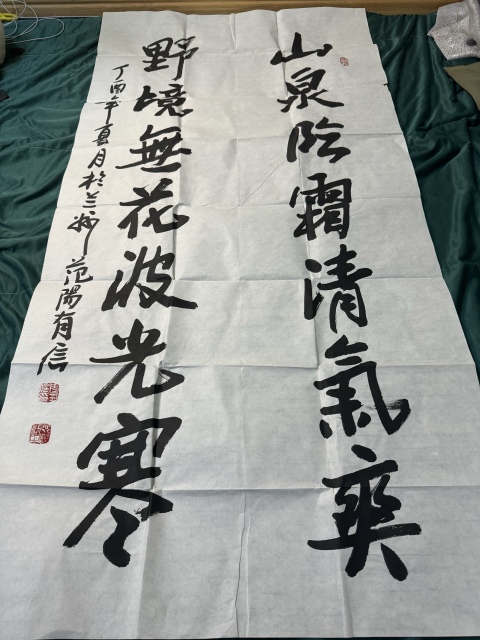 山泉臨霜清氣爽
野境無花波光寒
丁酉年夏月於兰州 范陽有信